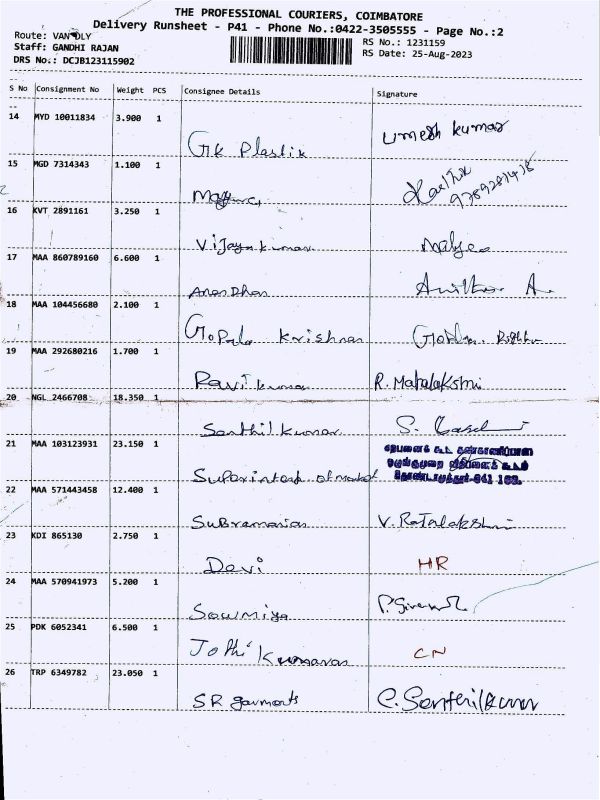 THE PROFESSIONAL COURIERS, COIMBATORE
Delivery Runsheet - P41 - Phone No.:0422-3505555 - Page No.:2
Route: VAN DLY
Staff: GANDHI RAJAN
DRS No.: DCJB123115902
RS No.: 1231159
RS Date: 25-Aug-2023
S No Consignment No Weight PCS Consignee Details Signature
14 MYD 10011834 3.900 1
GK Plastik Umesh Kumar
15 MGD 7314343 1.100 1
Karthik
9789281418
16 KVT 2891161 3.250 1
Vijayakumar
17 MAA 860789160 6.600 1
Anandhan Anitha A.
18 MAA 104456680 2.100 1
Gopala krishnan
19 MAA 292680216 1.700 1
Ravi kumar R. Mahalakshmi
20 NGL 2466708 18.350 1
Senthil kumar S.
21 MAA 103123931 23.150 1
ஒழுங்குமுறை விற்பனைக் கூடம்
தொண்டாமுத்தூர்-641 109.
22 MAA 571443458 12.400 1
Subramanian V. Rajalakshmi
23 KDI 865130 2.750 1
Devi HR
24 MAA 570941973 5.200 1
Sowmiya
25 PDK 6052341 6.500 1
Jothi Kumaran CN
26 TRP 6349782 23.050 1
SR garments C. Senthilkumar